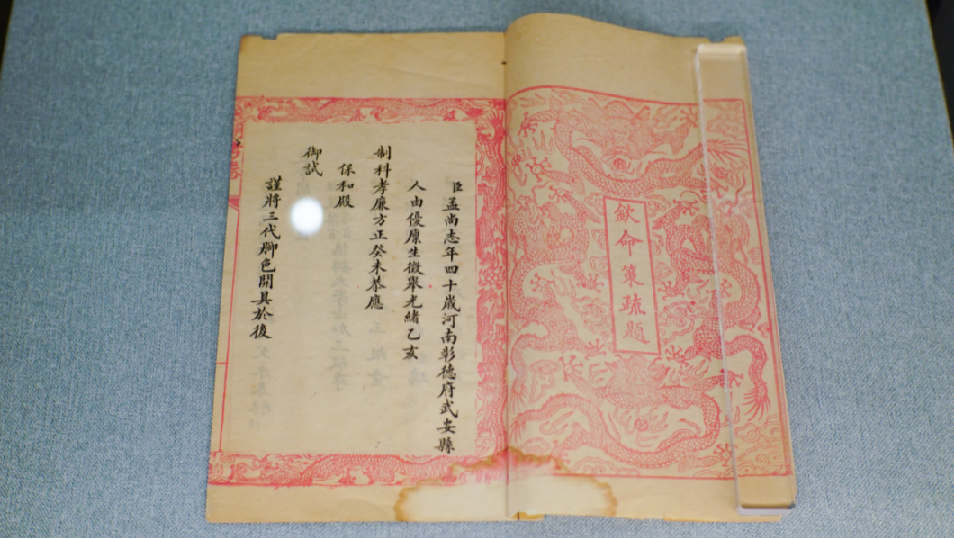 欽命策疏題
臣孟尚志年四十歲河南彰德府武安縣
人由優廩生徵舉光緒乙亥
制科孝廉方正癸未恭應
保和殿
御試
謹將三代腳色開具於後